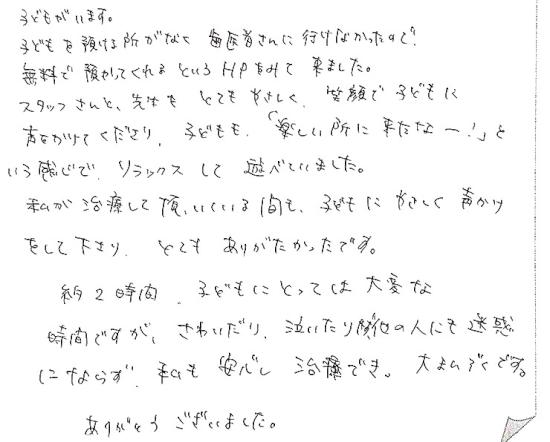 子どもがいます。
子どもを預ける所がなく 歯医者さんに行けなかったので、
無料で預かってくれるというHPをみて来ました。
スタッフさんと、先生も とても やさしく、笑顔で子どもに
声をかけてくださり、子どもも、「楽しい所に来たなー！」と
いう感じで、リラックスして 遊べていました。
私が治療して頂いている間も、子どもにやさしく声かけ
をして下さり、とても ありがたかったです。
約2時間、子どもにとっては大変な
時間ですが、さわいだり、泣いたり 他の人にも迷惑
にならず、私も安心し治療でき、大まんぞくです。
ありがとうございました。